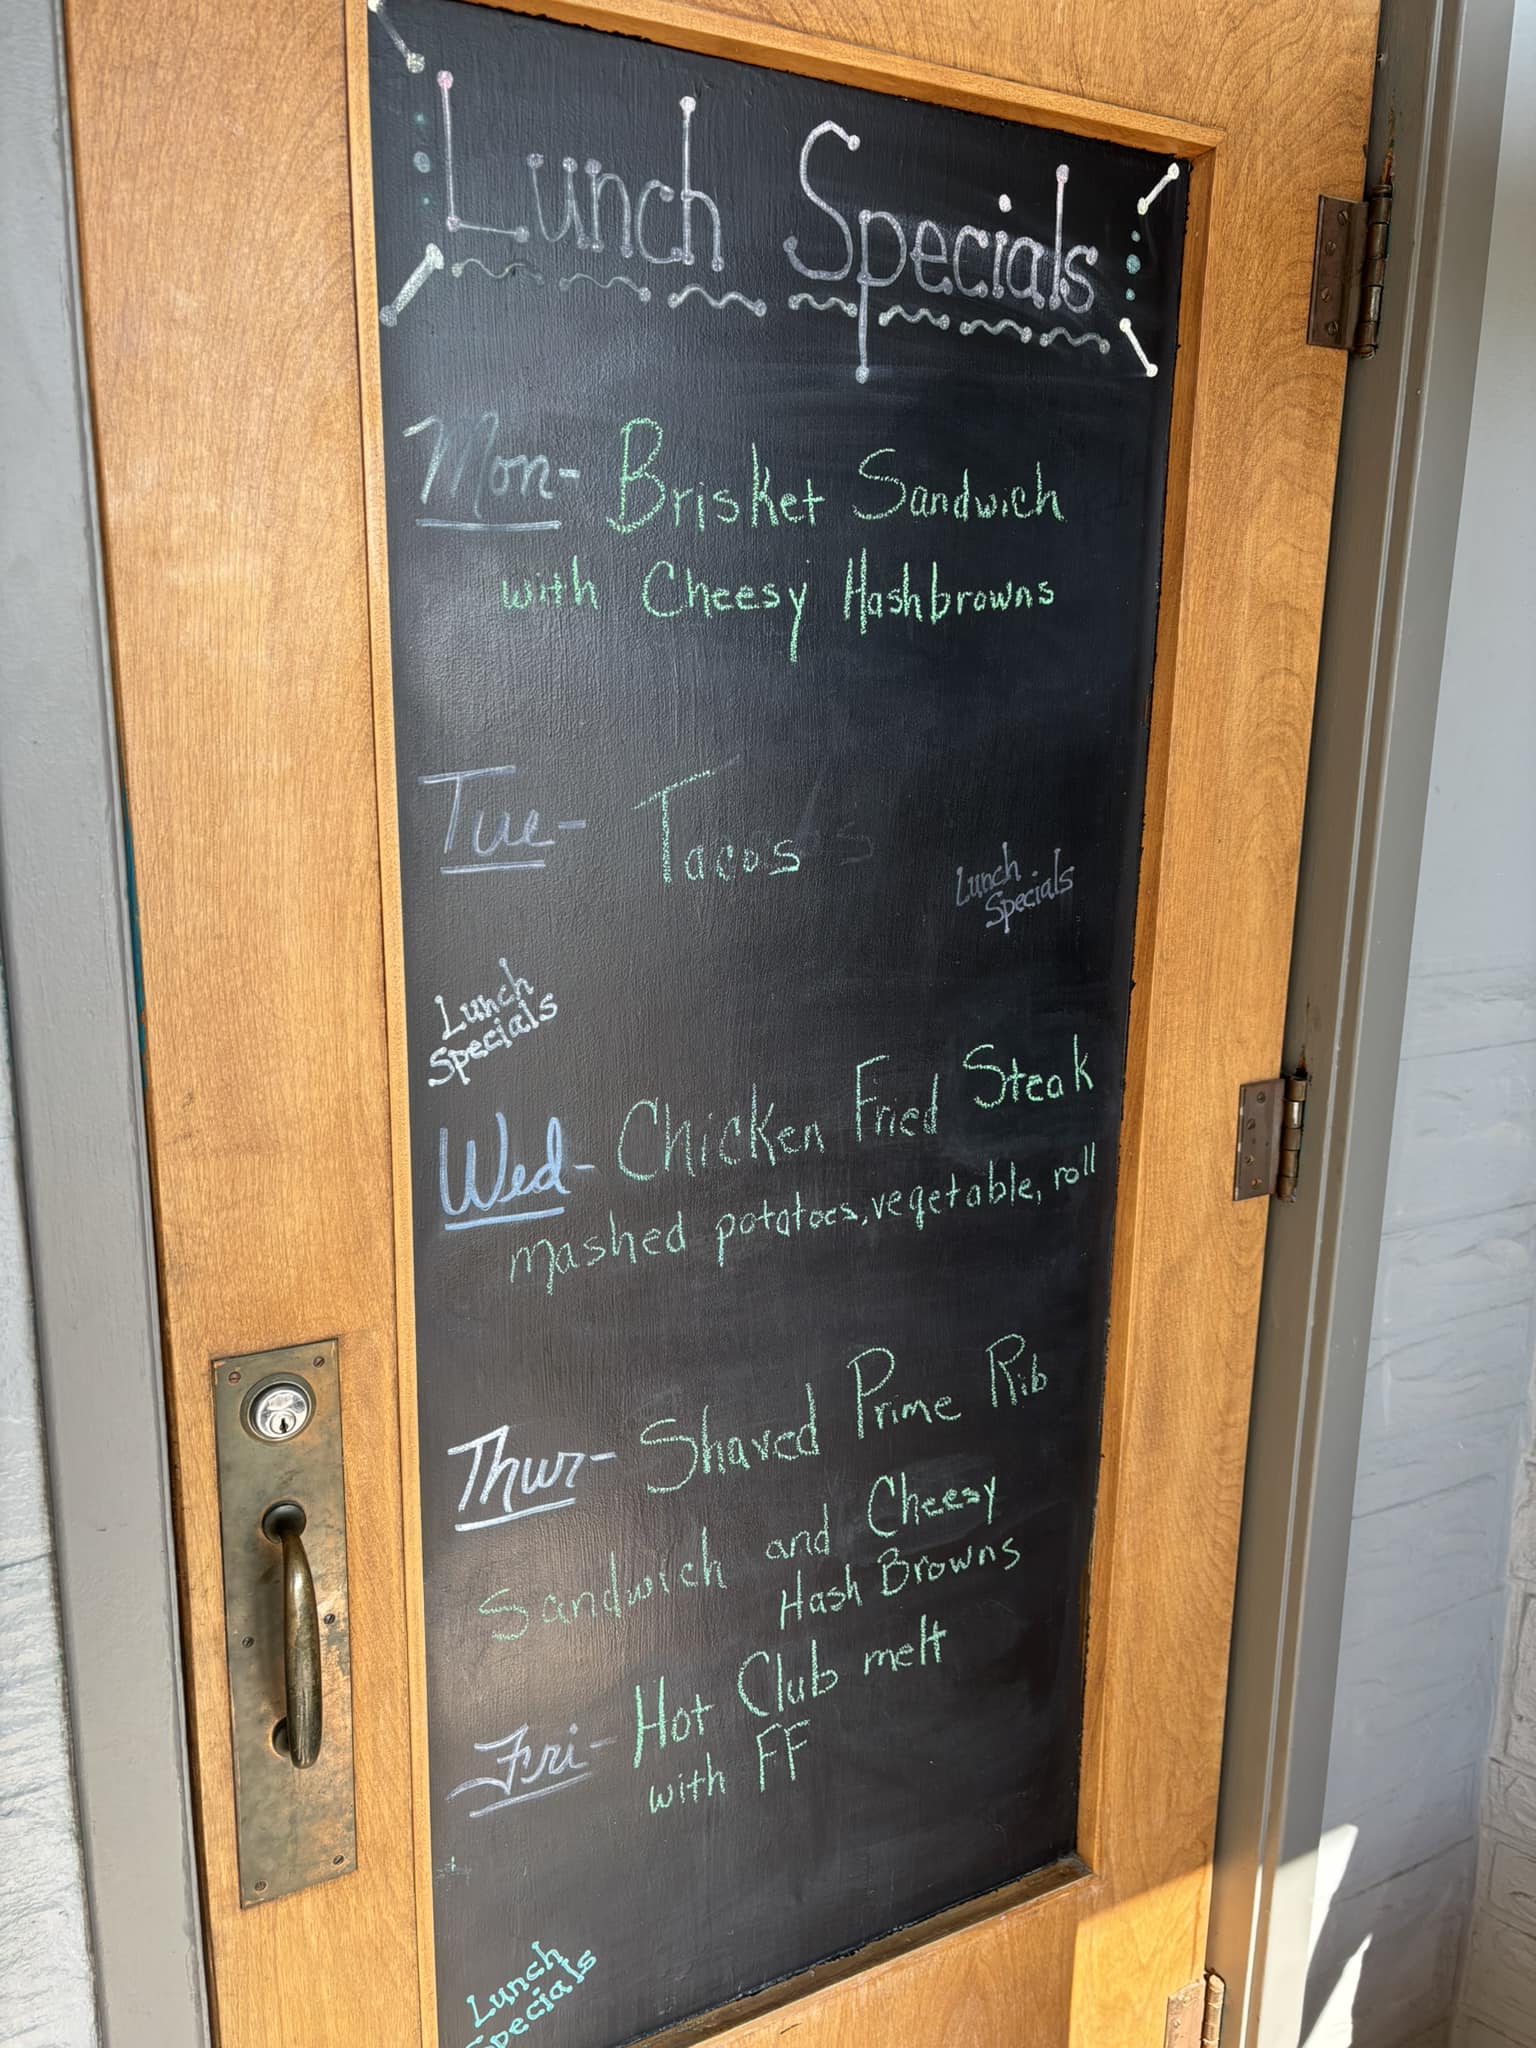 Lunch Specials
Mon- Brisket Sandwich
with Cheesy Hashbrowns
Tue- Tacos
Lunch
Specials
Lunch
Specials
Wed- Chicken Fried Steak
mashed potatoes, vegetable, roll
Thur- Shaved Prime Rib
Sandwich and Cheesy
Hash Browns
Fri- Hot Club melt
with FF
Lunch
Specials